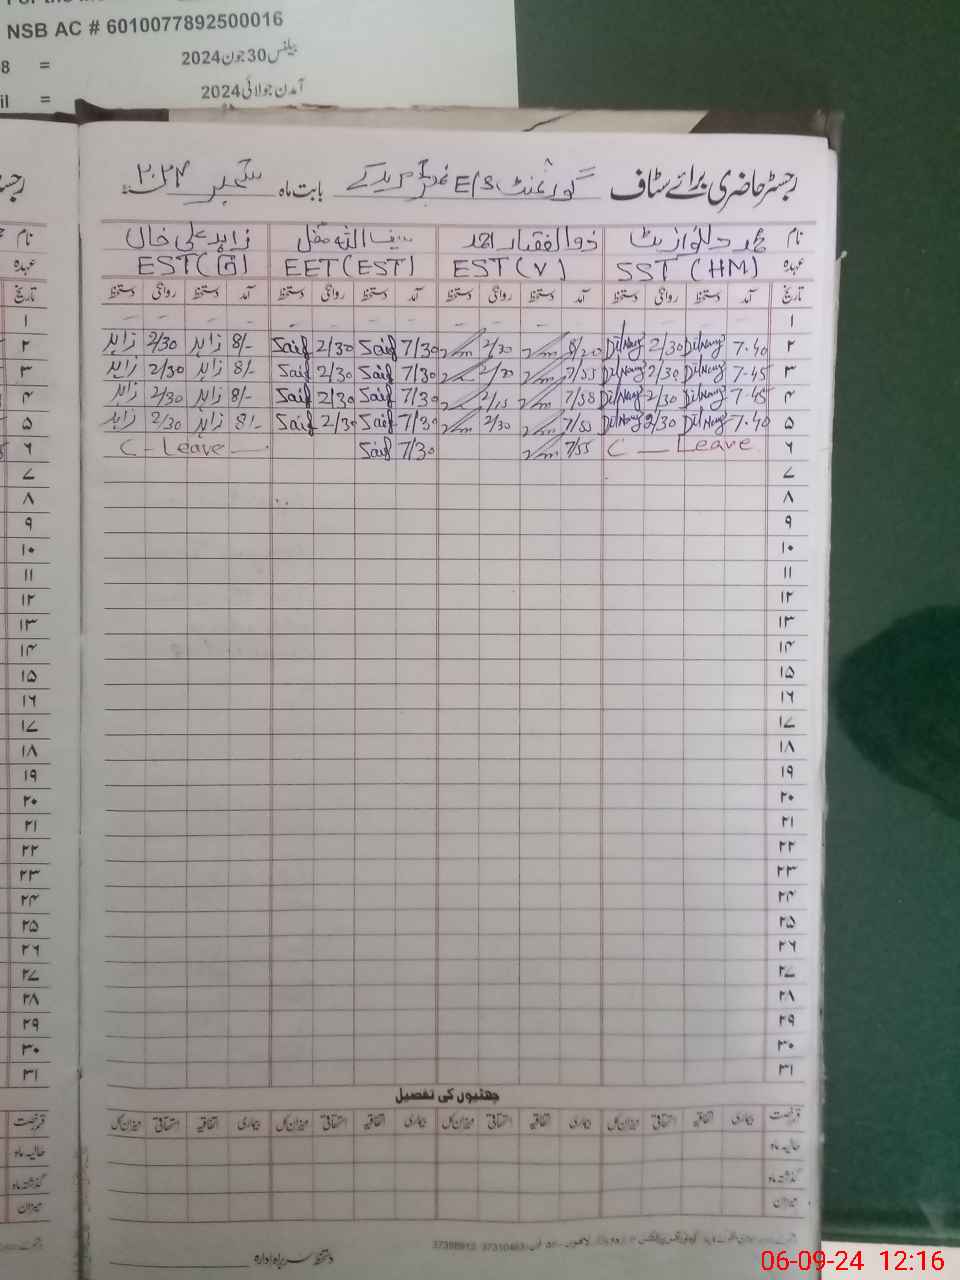 NSB AC # 6010077892500016
8 = بیلنس 30 جون 2024
il = آمدن جولائی 2024
رجسٹر حاضری برائے سٹاف گورنمنٹ E/S مریدکے بابت ماہ ستمبر ۲۰۲۴
نام محمد دلنواز بٹ ذوالفقار احمد زاہد علی خان
عہدہ SST (HM) EST (V) EET (EST) EST (G)
تاریخ آمد دستخط روانگی دستخط آمد دستخط روانگی دستخط آمد دستخط روانگی دستخط آمد دستخط روانگی دستخط
۱
۲ 7-40 DilNawaz 2/30 DilNawaz 2/30 7/30 Saif 2/30 Saif 8/- زاہد 2/30 زاہد
۳ 7-45 DilNawaz 2/30 DilNawaz 7/55 7/30 Saif 2/30 Saif 8/- زاہد 2/30 زاہد
۴ 7-45 DilNawaz 2/30 DilNawaz 7/30 Saif 2/30 Saif 8/- زاہد 2/30 زاہد
۵ 7-40 DilNawaz 2/30 DilNawaz 2/30 7/30 Saif 2/30 Saif 8/- زاہد 2/30 زاہد
۶ C - Leave 7/55 7/30 Saif C - Leave
۷
۸
۹
۱۰
۱۱
۱۲
۱۳
۱۴
۱۵
۱۶
۱۷
۱۸
۱۹
۲۰
۲۱
۲۲
۲۳
۲۴
۲۵
۲۶
۲۷
۲۸
۲۹
۳۰
۳۱
چھٹیوں کی تفصیل
قسم رخصت بیماری اتفاقیہ استحقاقی میزان کل بیماری اتفاقیہ استحقاقی میزان کل بیماری اتفاقیہ استحقاقی میزان کل بیماری اتفاقیہ استحقاقی میزان کل
حالیہ ماہ
گذشتہ ماہ
میزان
دستخط سربراہ ادارہ
06-09-24 12:16